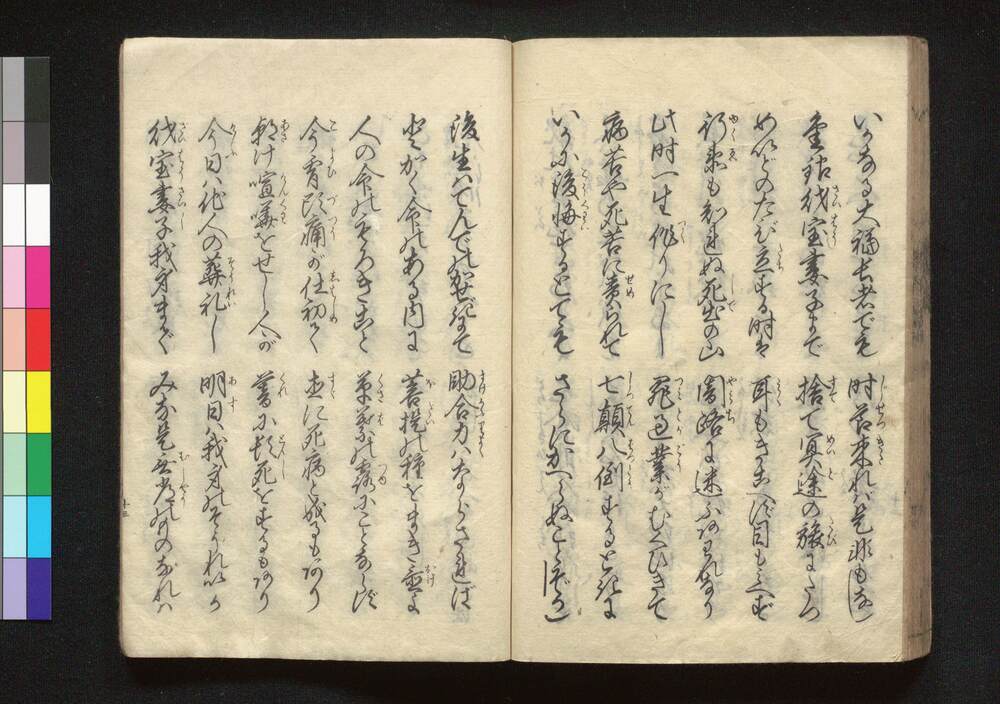 いかなる大福長者でも　時節来れバ是非もなし
金銀財宝妻子まで　捨て冥途の旅にたつ
めいどのたび立する時は　耳もきこへず目もみへず
行衛もしれぬ死出の山　闇路に迷ふあはれなり
此時一生作りにし　罪とが業がむくひきて
病苦や死苦に責られて　七顛八倒するときに
いかに後悔するとても　さらにかへらぬことぞかし
後生ハてんでのかせぎにて　助合力ハならざれば
とかく命のある内に　菩提の種をまき置よ
人の命のもろきこと　草葉の露にことならず
今宵頭痛が仕初て　直に死病と成るもあり
朝け喧嘩をせし人が　暮に頓死をするもあり
今日ハ他人の葬礼し　明日ハ我身のそうれいか
財宝妻子我身まで　みな是無常のものなれバ
十三